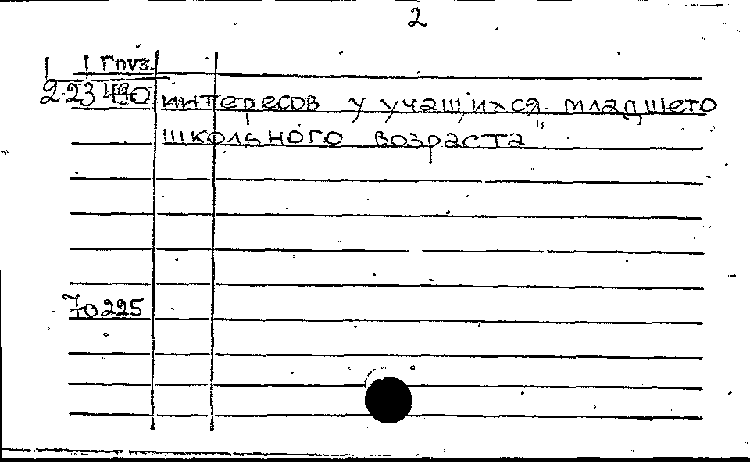 2
Груз.
интересов у учащихся младшего
школьного возраста"
70225